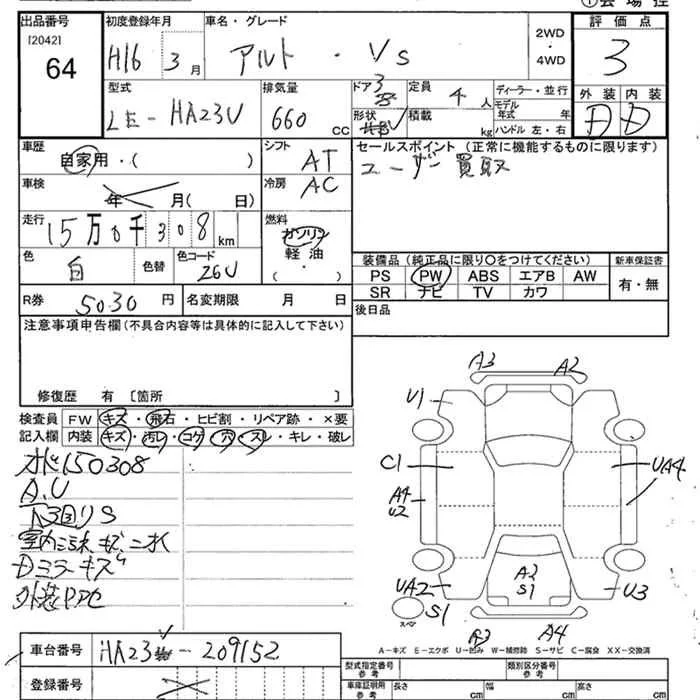 ①会場控
出品番号 初度登録年月 車名・グレード 評価点
[2042]
64 H16 3月 アルト・Vs 2WD・4WD 3
型式 排気量 ドア 定員 ディーラー・並行 外装 内装
LE-HA23V 660cc 3 4人 モデル年式 年 D D
形状 V 積載 kg ハンドル 左・右
車歴 シフト セールスポイント (正常に機能するものに限ります)
自家用・( ) AT ユーザー買取
車検 年 月( 日) 冷房 AC
走行 15万0千308km 燃料
ガソリン
軽油
( ・ )
色 白 色替 色コード 26U
装備品 (純正品に限り〇をつけてください) 新車保証書
PS PW ABS エアB AW 有・無
SR ナビ TV カワ
R券 5030円 名変期限 月 日
後日品
注意事項申告欄(不具合内容等は具体的に記入して下さい)
修復歴 有 [箇所 ]
検査員 FW キズ・飛石・ヒビ割・リペア跡・×要
記入欄 内装 キズ・汚レ・コゲ・穴・スレ・キレ・破レ
オド150308
A.U
下回りS
Dミラーキズ
A3 A2
U1
C1 UA4
A4
U2
A2
S1
UA2 U3
S1
スペア
A3 A4
A-キズ E-エクボ U-凹み W-補修跡 S-サビ C-腐食 XX-交換済
車台番号 HA23V-209152
登録番号
型式指定番号 参考 類別区分番号 参考
車庫証明用 参考 長さ cm 幅 cm 高さ cm